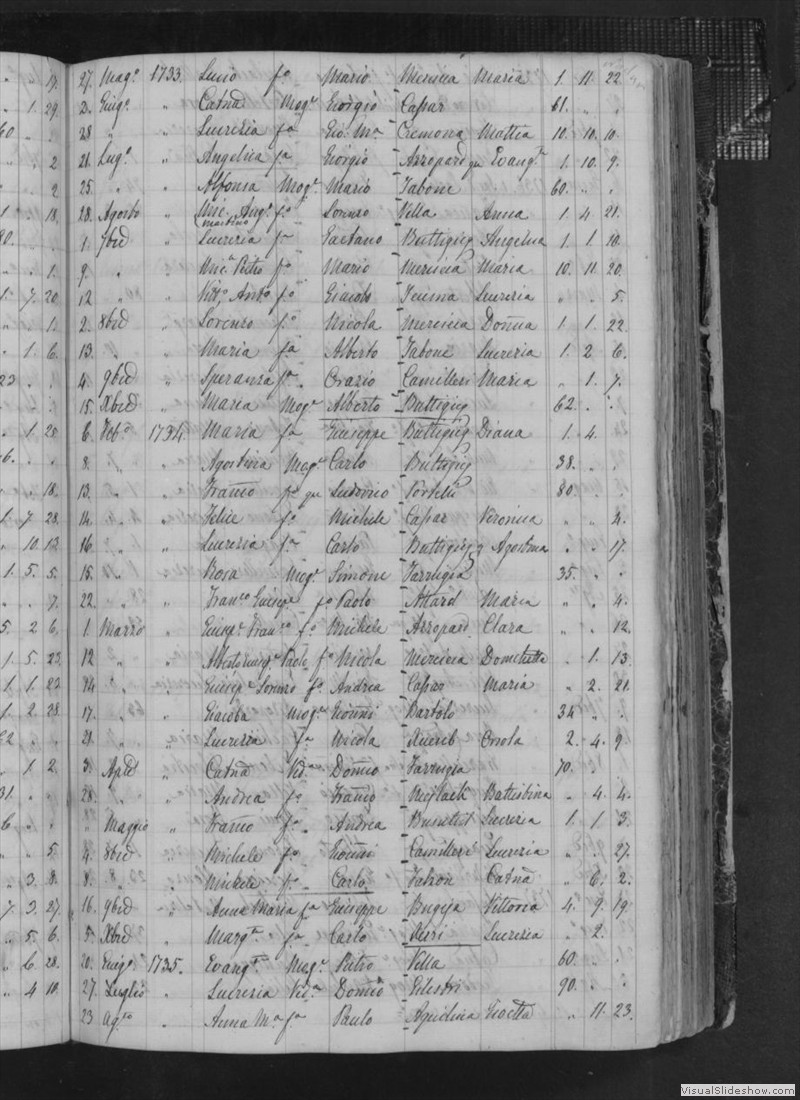 19. 27. Mag.o 1733. Lucio f.o Mario Mercieca Maria 1. 11. 22.
1. 29. 2. Giug.o " Catna Mog.e Giorgio Capar 61. " "
28 " " Lucrezia fa Gio. Ma Cremona Mattea 10. 10. 10.
2 21. Lug.o " Angelica fa Giorgio Azzopard qm Evang.ta 1. 10. 9.
2 25. " " Alfonsa Mog.e Mario Tabone 60. " "
18. 28. Agosto " Mic. Ang.o f.o Lorenzo Vella Anna 1 4 21.
Martino
1. 7bre " Lucrezia fa Gaetano Buttigieg Angelica 1. 1. 10.
1. 9. " " Mic. Pietro f.o Mario Mercieca Maria 10. 11 20.
1. 7. 20 12 " " Vitt.o Anto f.o Giacobo Lucrezia " " 5.
1. 2. 8bre " Lorenzo f.o Nicola Mercieca Donna 1. 1. 22.
1. 6. 13. " " Maria fa Alberto Tabone Lucrezia 1. 2 6.
23 4. 9bre " Speranza fa Orazio Camilleri Maria " 1. 7.
15. Xbre " Maria Mog.e Alberto Buttigieg 62. " "
1. 25. 6. Feb.o 1734. Maria fa Giuseppe Buttigieg Diana 1. 4.
8. " " Agostina Mog.e Carlo Buttigieg 38. " "
18. 13. " " Franco f.o qm Ludovico Portelli 80. " "
1. 7 28. 14. " " Felice f.o Michele Capar Veronica " " 4.
10. 13 16. " " Lucrezia fa Carlo Buttigieg Agostina " " 17.
1. 5. 5. 15. " " Rosa Mog.e Simone Farrugia 35. " "
7. 22. " " Fran.co Giuseppe f.o Paolo Attard Maria " " 4.
5. 2 6. 1. Marzo " Giusep.e Fran.co f.o Michele Azzopard Clara " " 12.
1. 5. 23. 12 " " Paolo f.o Nicola Mercieca " 1. 13
1. 1. 22 14 " " Giusep.e Lorenzo f.o Andrea Capar Maria " 2. 21.
1. 2. 28 17. " " Giacoba Mog.e Gionni Bartolo 34 " "
22. 21. " " Lucrezia fa Nicola Orsola 2. 4. 9
1 2. 3. Aprile " Catna Ved.a Domco Farrugia 70. " "
31. 28. " " Andrea f.o Franco Battistina " 4. 4.
6 " Maggio " Franco f.o Andrea Busuttil Lucrezia 1. 1 3.
5. 4. 8bre " Michele f.o Gionni Camilleri Lucrezia " " 27.
3. 8. 8. " " Michele f.o Carlo Falzon Catna " 6. 2.
7 3. 27 16. 9bre " Anna Maria fa Giuseppe Bugeja Vittoria 4. 9. 19.
5. 6. 5. Xbre " Marg.ta fa Carlo Lucrezia " 2.
6. 28. 20. Giug.o 1735. Evang.ta Mog.e Pietro Vella 60. " "
4 10. 27. Luglio " Lucrezia Ved.a Domco 90. " "
23 Ag.to " Anna Ma fa Paulo Aquilina " 11. 23.
VisualSlideshow.com